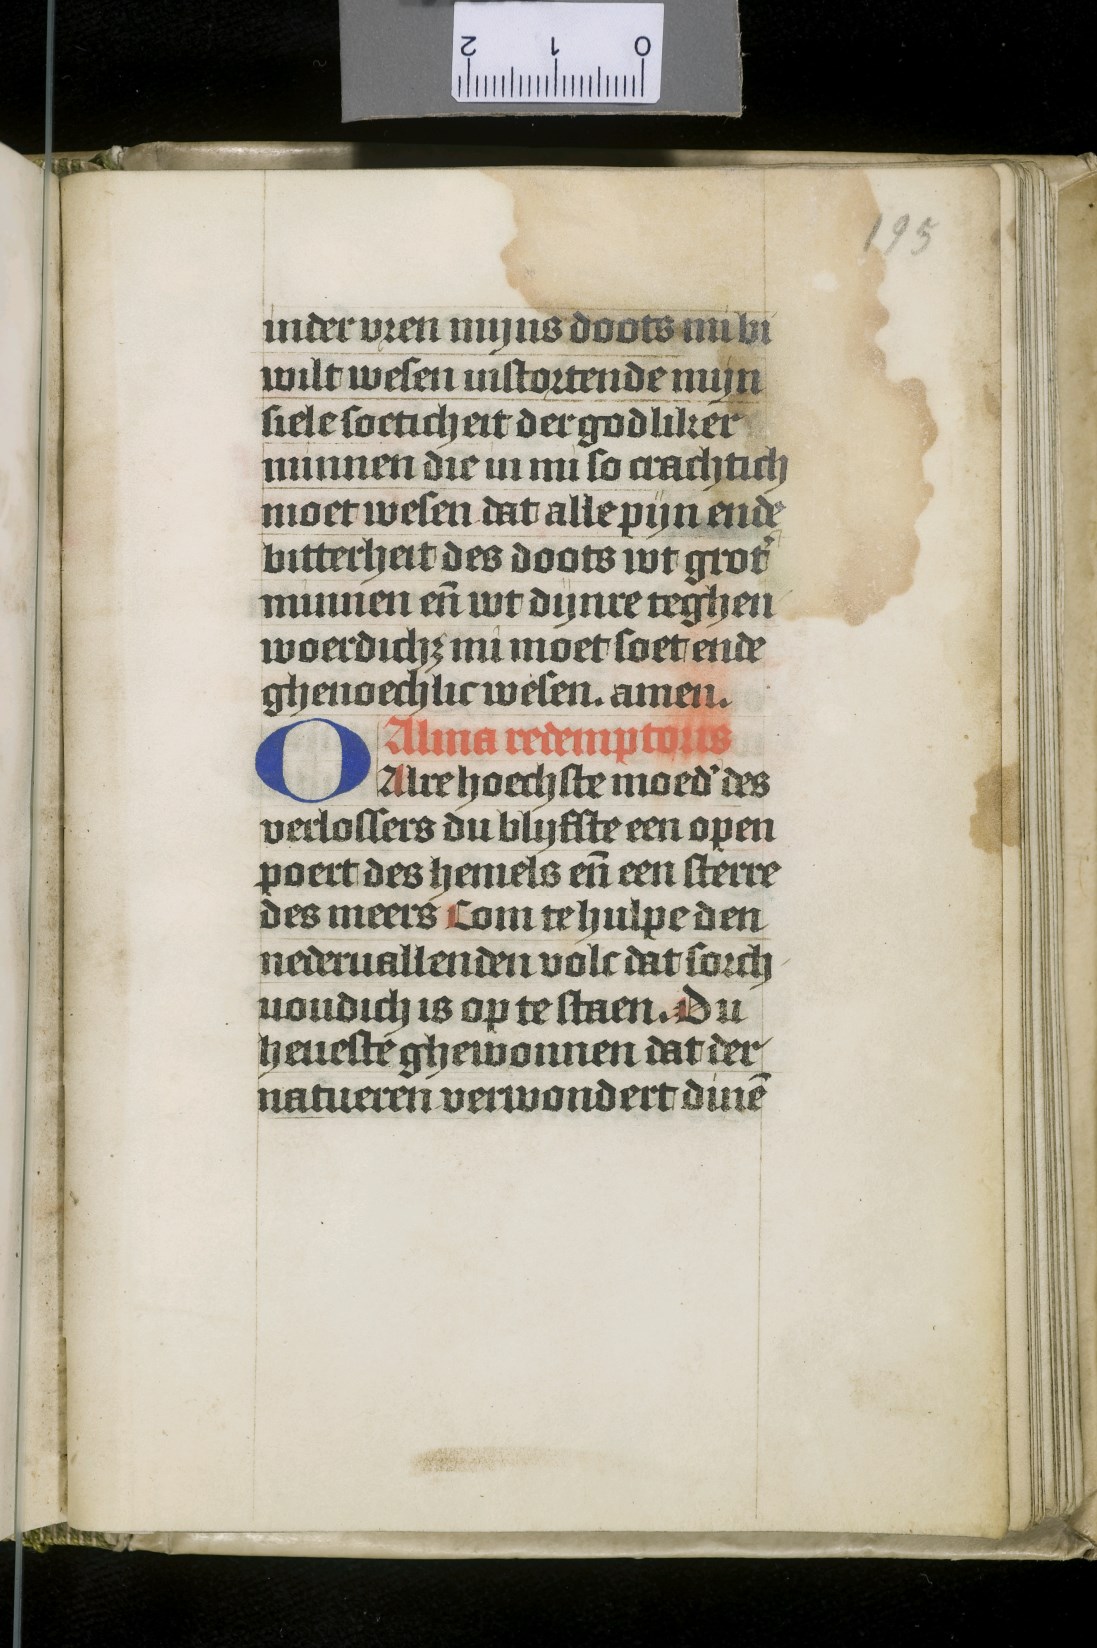 2 1 0
195
inder vren mijns doots mi bi
wilt wesen instortende mijn
siele soeticheit der godliker
minnen die in mi so crachtich
moet wesen dat alle pijn ende
bitterheit des doots wt grot'
minnen en̄ wt dijnre teghen
woerdichꝫ mi moet soet ende
ghenoechlic wesen. amen.
Alma redemptoris
O Alre hoechste moed' des
verlossers du blyfste een open
poert des hemels en̄ een sterre
des meers Com te hulpe den
nederuallenden volc dat sorch
uoudich is op te staen. Du
heueste ghewonnen dat der
natueren verwondert dinē